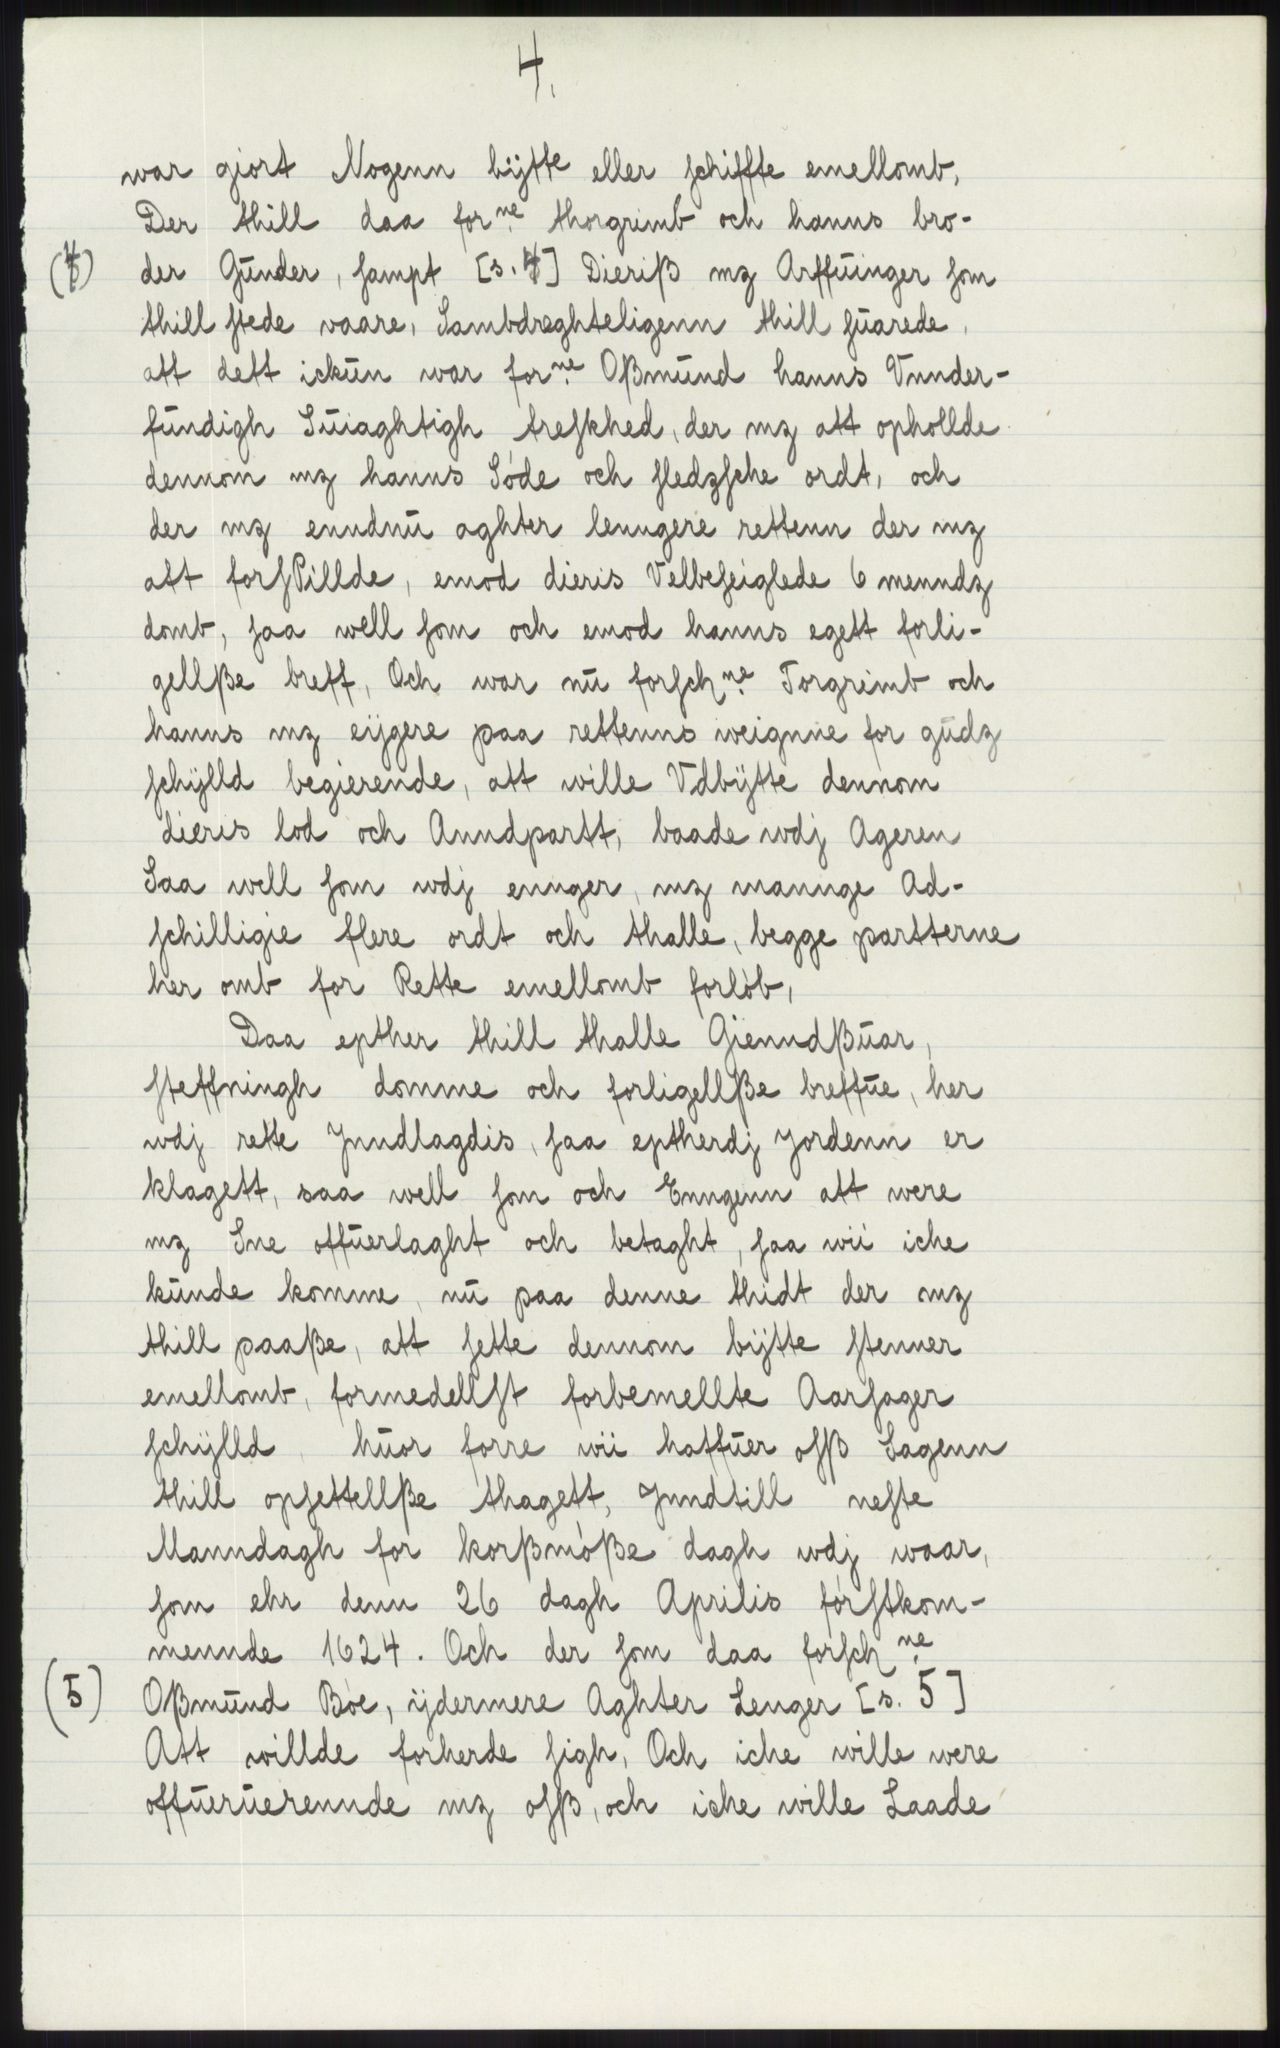 4.
war giort Nogenn bÿtte eller schiffte emellomb,
Der thill daa for<sup>ne</sup> thorgrimb och hanns bro-
(4) der Gunder, sampt [s. 4] Dieriß mz Arffuinger som
thill stede vaare, Sambdreghteligenn thill suarede,
att dett ickun war for<sup>ne</sup> Oßmund hanns Vnnder-
fundigh Suiaghtigh treskhed, der mz att ophollde
dennom mz hanns Søde och sledzsche ordt, och
der mz enndnu aghter lenngere rettenn der mz
att forspillde, emod dieris Velbeseiglede 6 menndz
domb, saa well som och emod hanns egett forli-
gellße breff, Och war nu forsch<sup>ne</sup> Torgrimb och
hanns mz eÿgere paa rettenns weignne for gudz
schÿlld begierende, att wille Vdbÿtte dennom
dieris lod och Anndpartt, baade wdj Ageren
Saa well som wdj ennger, mz mannge Ad-
schilligie flere ordt och thalle, begge partterne
her omb for Rette emellomb forløb,
Daa epther thill thalle Giennd ßuar,
steffningh domme och forligellße breffue, her
wdj rette Jnndlagdis, saa eptherdj Jordenn er
klagett, saa well som och Enngenn att were
mz Sne offuerlaght och betaght, saa wii iche
kunde komme, nu paa denne thidt der mz
thill paaße, att sette dennom bÿtte stenner
emellomb, formedellst forbemellte Aarsager
schÿlld, huor forre wii haffuer osß Sagenn
thill opsettellße thagett, Jnndtill neste
Manndagh for korßmøße dagh wdj waar,
som ehr denn 26 dagh Aprilis førstkom-
mennde 1624. Och der som daa forsch<sup>ne</sup>
(5) Oßmund Bøe, ÿdermere Aghter Lenger [s. 5]
Att willde forherde sigh, Och iche wille were
offueruerennde mz osß, och iche wille Laade